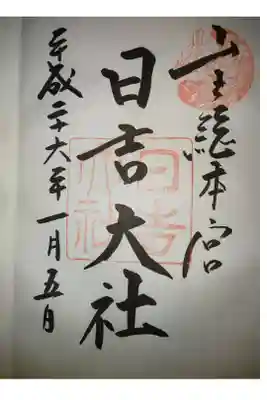 山王総本宮
日吉大社
平成二十六年一月五日
日吉
大社